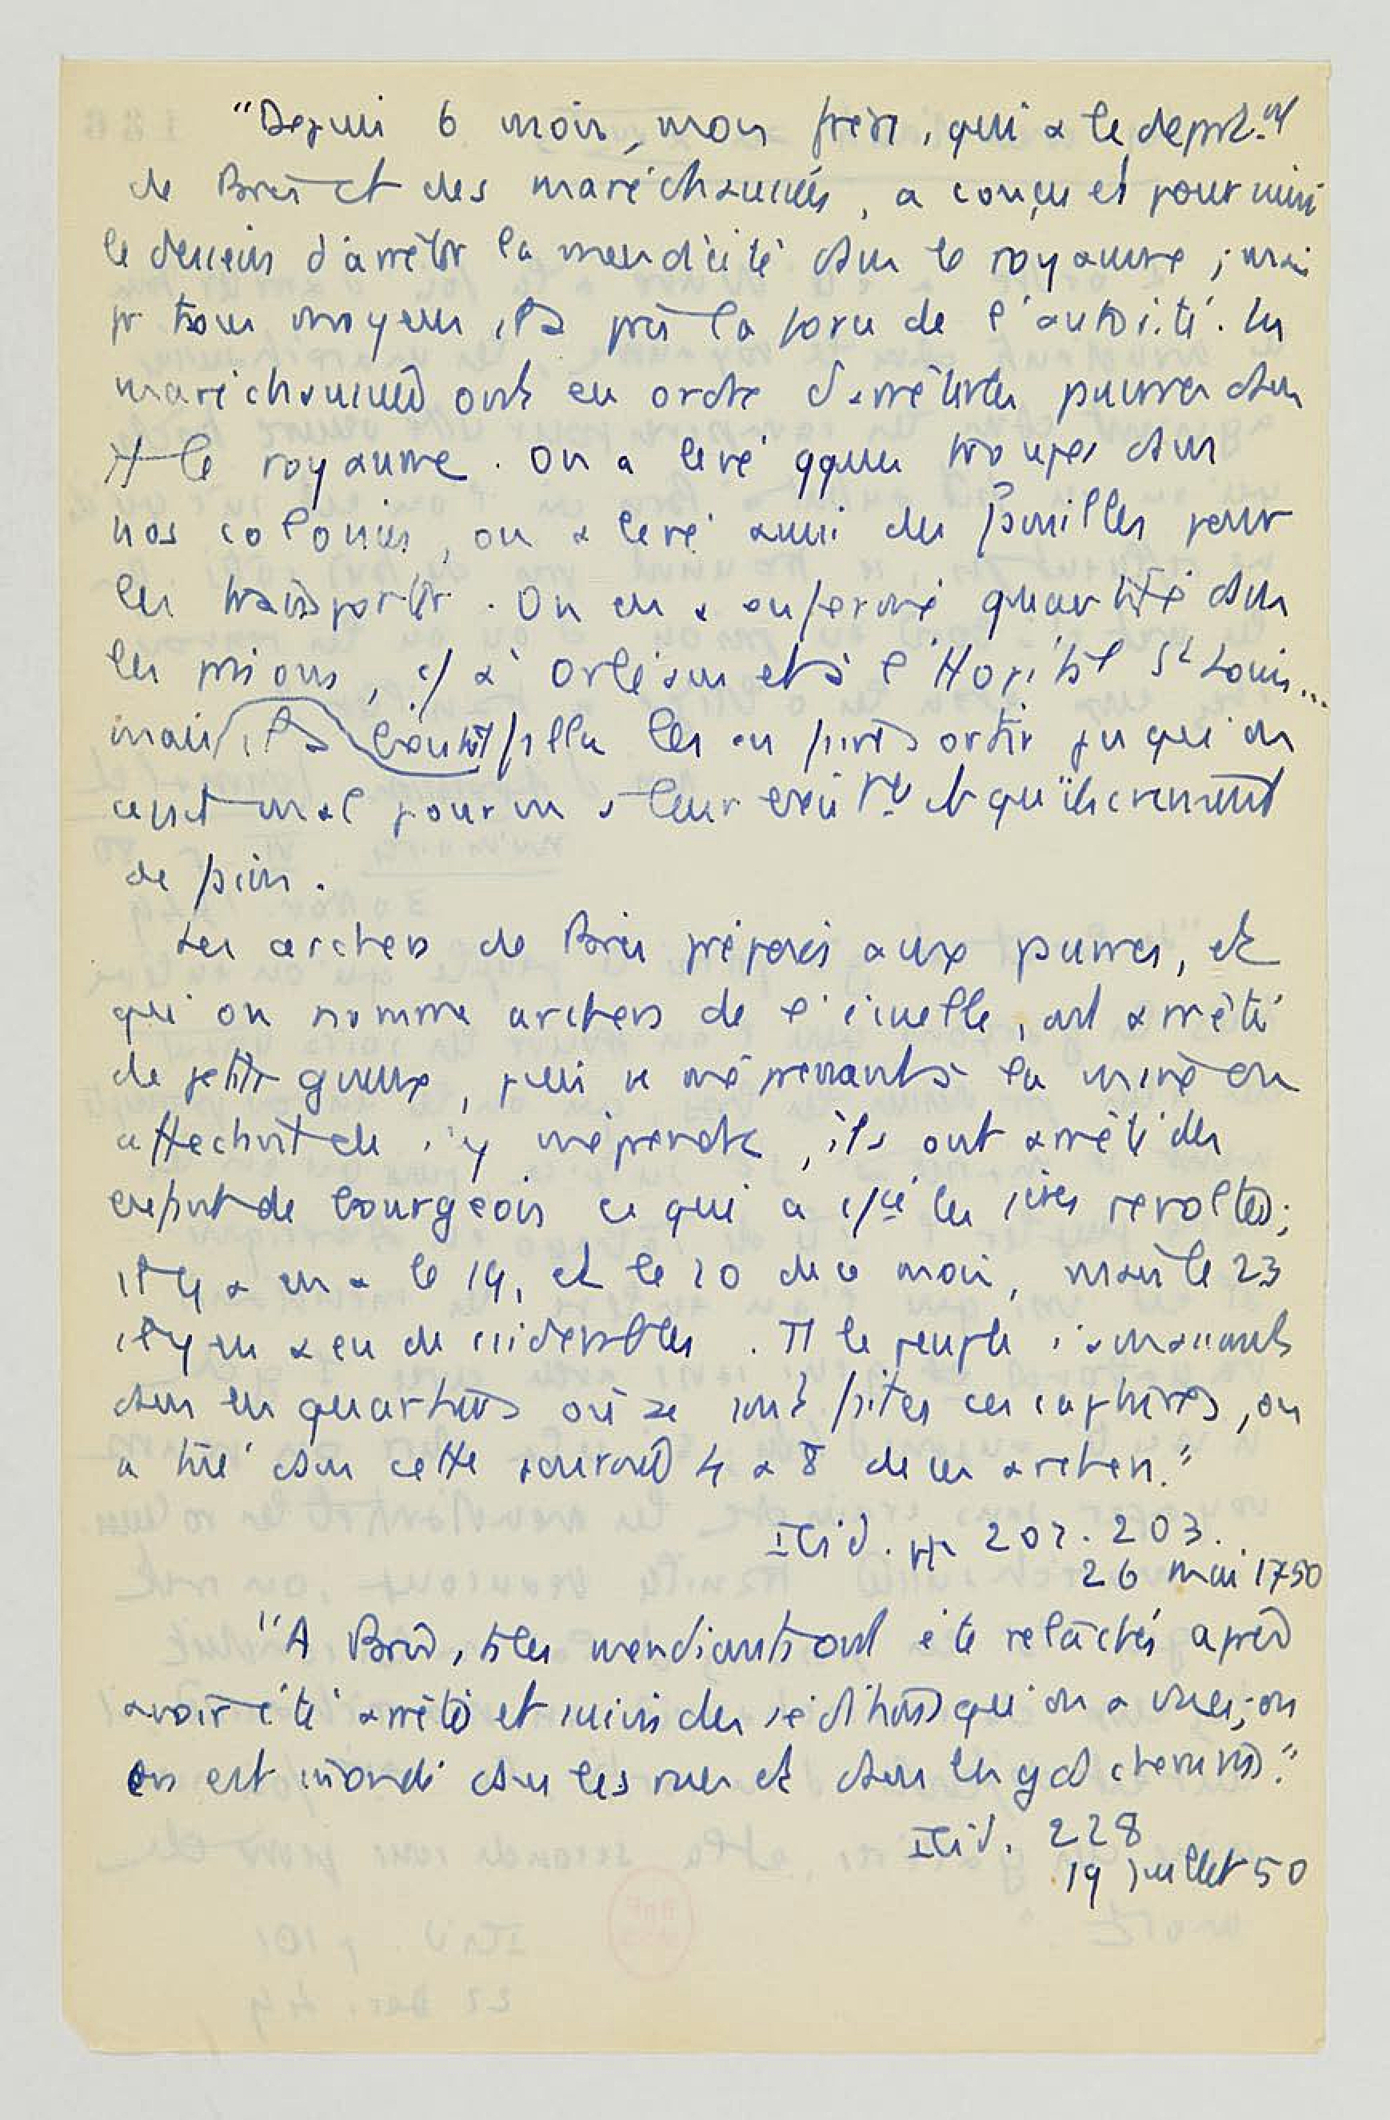 "Depuis 6 mois, mon frère, qui a le dépt.
de Paris et des maréchaussées, a conçu et poursuivi
le dessein d'arrêter la mendicité dans le royaume ; mais
pr tous moyens, il a pris la force de l'autorité. Les
maréchaussées ont eu ordre d'arrêter les pauvres dans
tt le royaume. On a levé qques troupes dans
nos colonies, on a levé aussi des familles pour
les transporter. On en a enfermé quantité dans
les prisons, à Orléans et à l'Hopital St Louis...
mais il a bientôt fallu les en faire sortir puisqu'on
avait mal pourvu à leur et qu'ils crevaient
de faim.
Les archers de Paris préposés aux pauvres, et
qu'on nomme archers de l'écuelle, ont arrêté
de petits gueux, puis se méprenants à la mine ou
affectant de s'y méprendre, ils ont arrêté des
enfants de bourgeois ce qui a les 1ères revoltes ;
il y en a le 19, et le 20 de ce mois, mais le 23
il y en a eu de considérables. Tt le peuple s'amassants
dans les quartiers où se sont faites ces captures, on
a tué dans cette journée 4 à 8 de ces archers."
Ibid. pp 202. 203.
26 mai 1750
"A Paris, ts les mendiants ont été relâchés après
avoir été arrêtés et suivis des séditions qu'on a vues ; on
en est inondé dans les rues et dans les gds chemins."
Ibid. 228
19 juillet 50